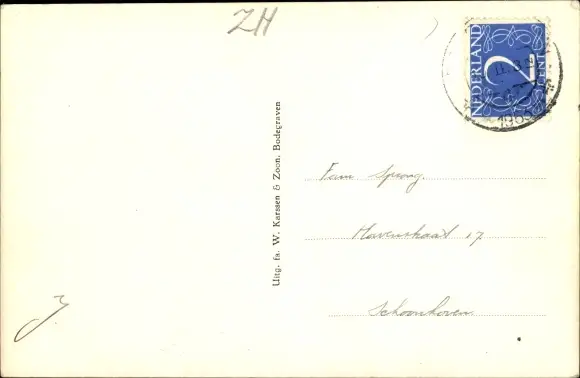 ZH
NEDERLAND
2
CENT
1953
Uitg. fa. W. Karssen & Zoon, Bodegraven
Fam Sprong.
Havenstraat 17
Schoonhoven